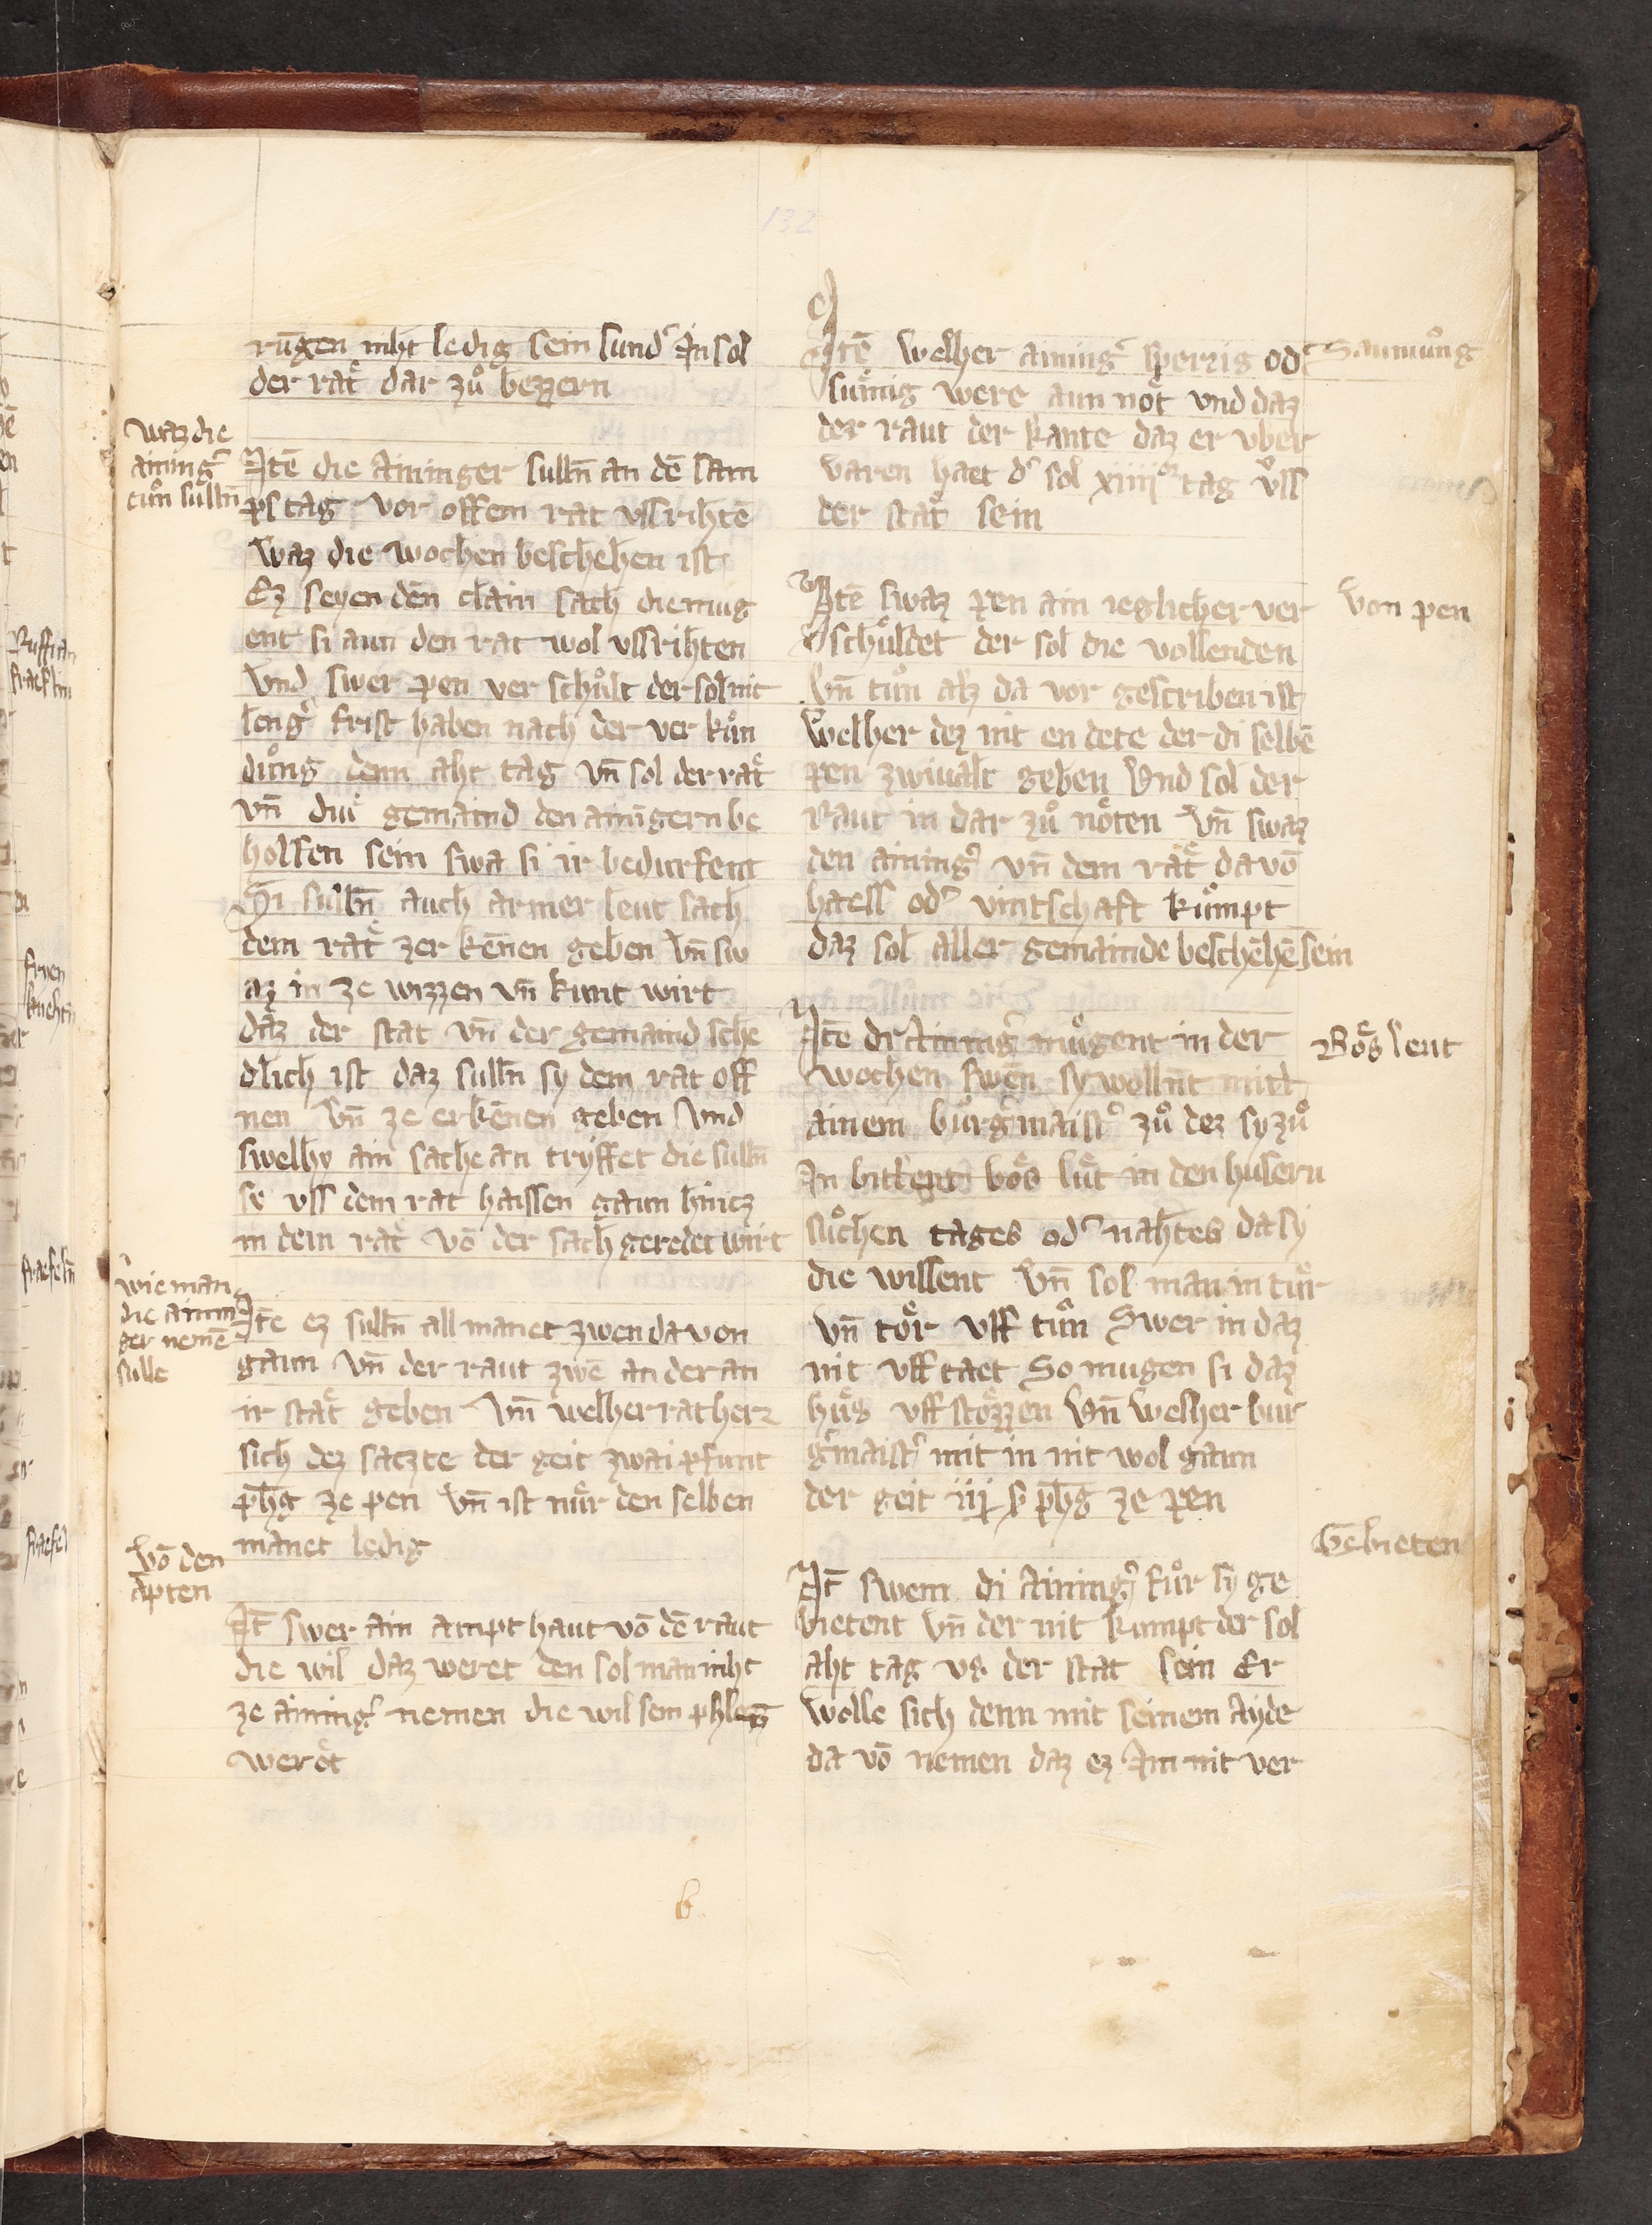 132
rügen niht ledig sein sund᾽ In sol
der rat dar zuͦ bezzern
Waz die
aining᾽
tuͦn sülln̄
Itē die aininger sülln̄ an dē sam
ps tag vor offem rat ussrihtē
Waz die wochen beschehen ist
Ez seyen den clain sach die mug
ent si aun den rat wol ussrihten
Vnd swer pen ver schuͤlt der sol nit
leng᾽ frist haben nach der ver kuͤn
duͤng denn aht tag vn̄ sol der rat
vn̄ diuͤ gemaind den ainigern be
holfen sein swa si ir bedurfent
Si sülln̄ auch armer leut sach
dem rat zer kēnen geben vn̄ sw
az in ze wizzen vn̄ kunt wirt
daz der stat vn̄ der gemaind sche
dlich ist daz sülln̄ sy dem rat off
nen vn̄ ze erkēnen geben Vnd
swelhv ain sache an tryffet die sülln̄
se uss dem rat haissen gaun hincz
in dem rat vō der sach geredet wirt
wie man
die ainin
ger nemē
sülle
Itē ez sülln̄ all manet zwen da von
gaun vn̄ der raut zwē an der an
ir stat geben Vn̄ welher rather
sich dez saczte der geit zwai pfunt
phg ze pen vn̄ ist nuͤr den selben
manet ledig
Vō den
apten
It̄ swer ain ampt haut vō dē raut
die wil daz weret den sol man niht
ze aining᾽ nemen die wil sein phleg
weret
Itē Welher aining᾽ sperrig od᾽
suͤmig were aun not vnd daz
der raut der kante daz er vber
varen haet d᾽ sol xiiij tag vss
der stat sein
Saumuͤng
Itē swaz pen ain ieglicher ver
schuͤldet der sol die vollenden
Vn̄ tuͦn alz da vor gescriben ist
Welher dez nit en dete der di selbē
pen zwiualt geben Vnd sol der
Raut in dar zuͦ noͤten Vn̄ swaz
den aining᾽ vn̄ dem rat da vō
haess od᾽ vintschaft kuͤmpt
daz sol aller gemainde beschehē sein
Von pen
Itē di aining᾽ muͤgent in der
wochen swen sy wolln̄t mitt
ainem burg᾽maist᾽ zuͦ dez sy zuͦ
In bittent boͤs luͤt in den husern
suͦchen tages od᾽ nahtes da sy
die wissent Vn̄ sol man in tuͤr
vn̄ toͤr uff tuͦn Swer in daz
nit uff taet So mugen si daz
huͤs uff stoͤzzen Vn̄ welher bur
g᾽maist᾽ mit in nit wol gaun
der geit iij ß phg ze pen
Boͤs leut
Gebieten
It̄ swem di aining᾽ fuͤr sy ge
bietent vn̄ der nit kumpt der sol
aht tag us der stat sein Er
wolle sich denn mit seinem ayde
da vō nemen daz ez Im nit ver
b